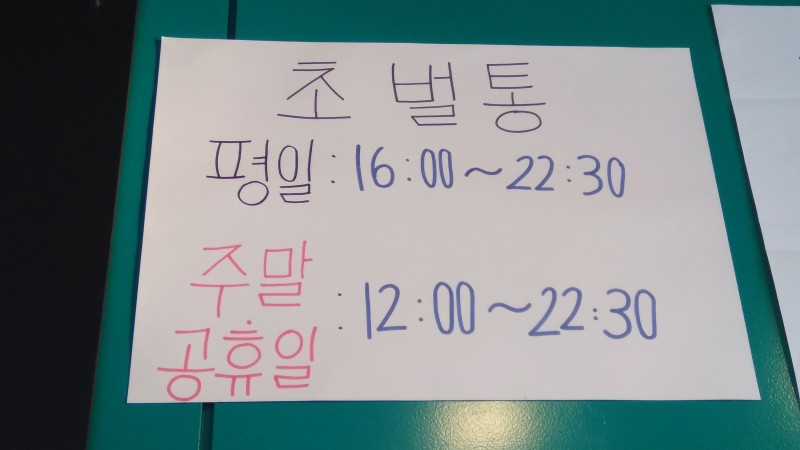 초벌통
평일 : 16:00~22:30
주말
공휴일 : 12:00~22:30